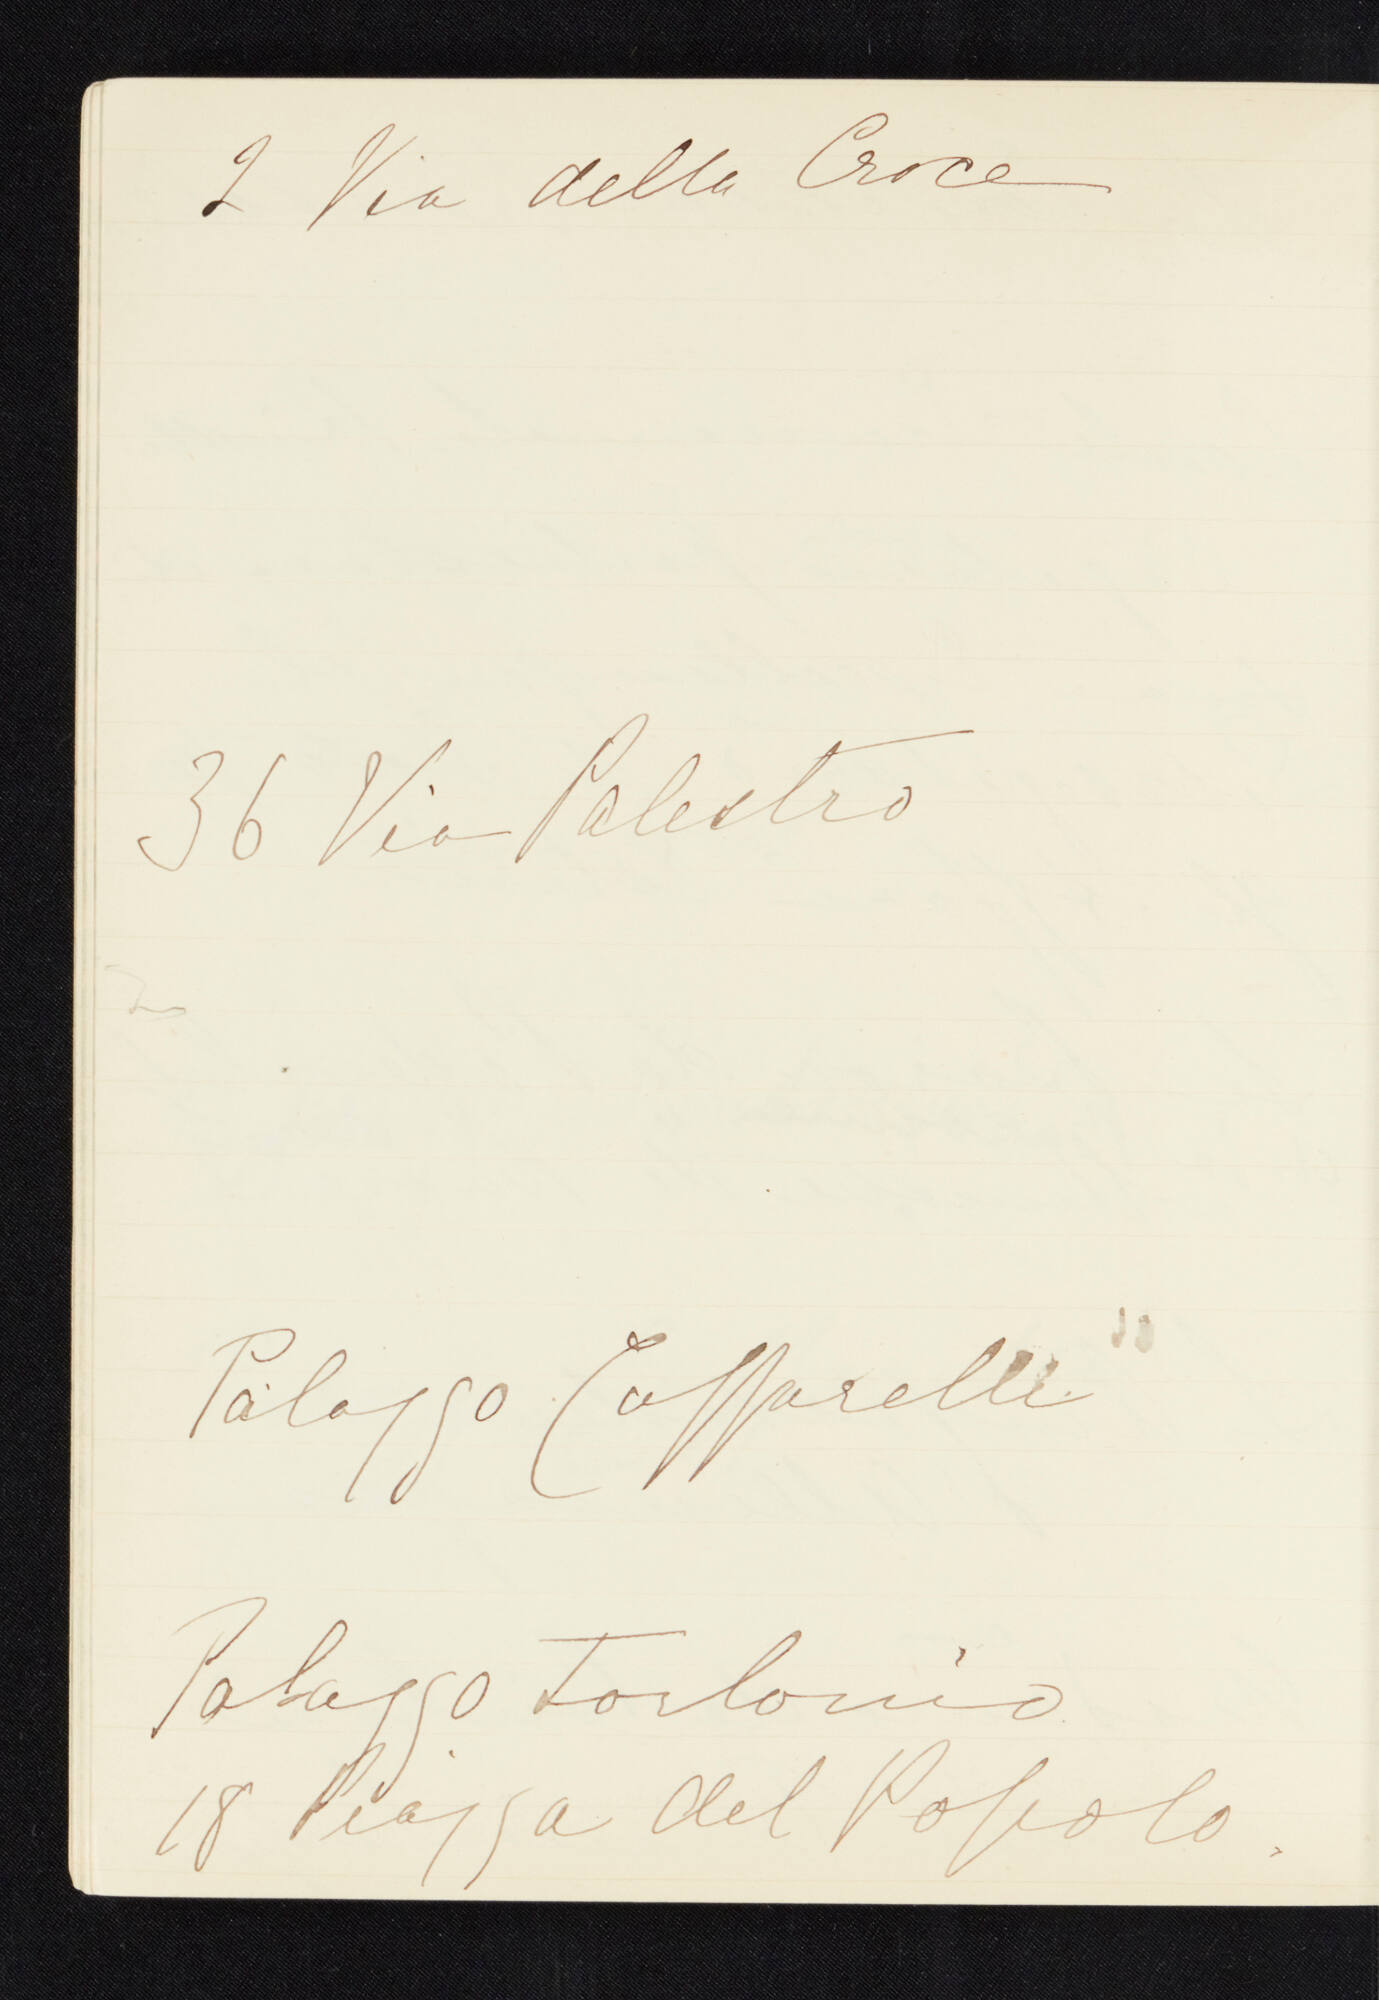 2 Via della Croce
36 Via Palestro
Palazzo Caffarelli
Palazzo Torlonia
18 Piazza del Popolo.